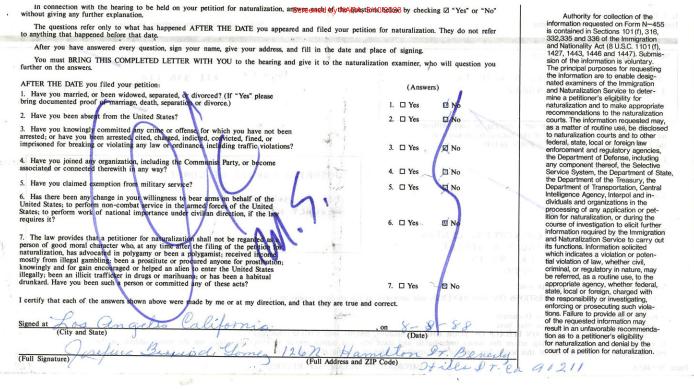 In connection with the hearing to be held on your petition for naturalization, answer each of the questions below by checking ☑ "Yes" or "No"
without giving any further explanation.
The questions refer only to what has happened AFTER THE DATE you appeared and filed your petition for naturalization. They do not refer
to anything that happened before that date.
After you have answered every question, sign your name, give your address, and fill in the date and place of signing.
You must BRING THIS COMPLETED LETTER WITH YOU to the hearing and give it to the naturalization examiner, who will question you
further on the answers.
AFTER THE DATE you filed your petition:
(Answers)
1. Have you married, or been widowed, separated, or divorced? (If "Yes" please
bring documented proof of marriage, death, separation or divorce.)
1. ☐ Yes ☑ No
2. Have you been absent from the United States?
2. ☐ Yes ☑ No
3. Have you knowingly committed any crime or offense, for which you have not been
arrested; or have you been arrested, cited, charged, indicted, convicted, fined, or
imprisoned for breaking or violating any law or ordinance, including traffic violations?
3. ☐ Yes ☑ No
4. Have you joined any organization, including the Communist Party, or become
associated or connected therewith in any way?
4. ☐ Yes ☑ No
5. Have you claimed exemption from military service?
5. ☐ Yes ☑ No
6. Has there been any change in your willingness to bear arms on behalf of the
United States; to perform non-combat service in the armed forces of the United
States; to perform work of national importance under civilian direction, if the law
requires it?
6. ☐ Yes ☑ No
7. The law provides that a petitioner for naturalization shall not be regarded as a
person of good moral character who, at any time after the filing of the petition for
naturalization, has advocated in polygamy or been a polygamist; received income
mostly from illegal gambling; been a prostitute or procured anyone for prostitution;
knowingly and for gain encouraged or helped an alien to enter the United States
illegally; been an illicit trafficker in drugs or marihuana; or has been a habitual
drunkard. Have you been such a person or committed any of these acts?
7. ☐ Yes ☑ No
OK
M.S.
I certify that each of the answers shown above were made by me or at my direction, and that they are true and correct.
Signed at Los Angeles California, on 8-8-88
(City and State) (Date)
Josefina Gomez 126 N. Hamilton Dr. Beverly
Hills Dr. Ca 91211
(Full Signature) (Full Address and ZIP Code)
Authority for collection of the
information requested on Form N-455
is contained in Sections 101(f), 316,
332, 335 and 336 of the Immigration
and Nationality Act (8 U.S.C. 1101(f),
1427, 1443, 1446 and 1447). Submis-
sion of the information is voluntary.
The principal purposes for requesting
the information are to enable desig-
nated examiners of the Immigration
and Naturalization Service to deter-
mine a petitioner's eligibility for
naturalization and to make appropriate
recommendations to the naturalization
courts. The information requested may,
as a matter of routine use, be disclosed
to naturalization courts and to other
federal, state, local or foreign law
enforcement and regulatory agencies,
the Department of Defense, including
any component thereof, the Selective
Service System, the Department of State,
the Department of the Treasury, the
Department of Transportation, Central
Intelligence Agency, Interpol and in-
dividuals and organizations in the
processing of any application or pet-
ition for naturalization, or during the
course of investigation to elicit further
information required by the Immigration
and Naturalization Service to carry out
its functions. Information solicited
which indicates a violation or poten-
tial violation of law, whether civil,
criminal, or regulatory in nature, may
be referred, as a routine use, to the
appropriate agency, whether federal,
state, local or foreign, charged with
the responsibility of investigating,
enforcing or prosecuting such viola-
tions. Failure to provide all or any
of the requested information may
result in an unfavorable recommenda-
tion as to a petitioner's eligibility
for naturalization and denial by the
court of a petition for naturalization.